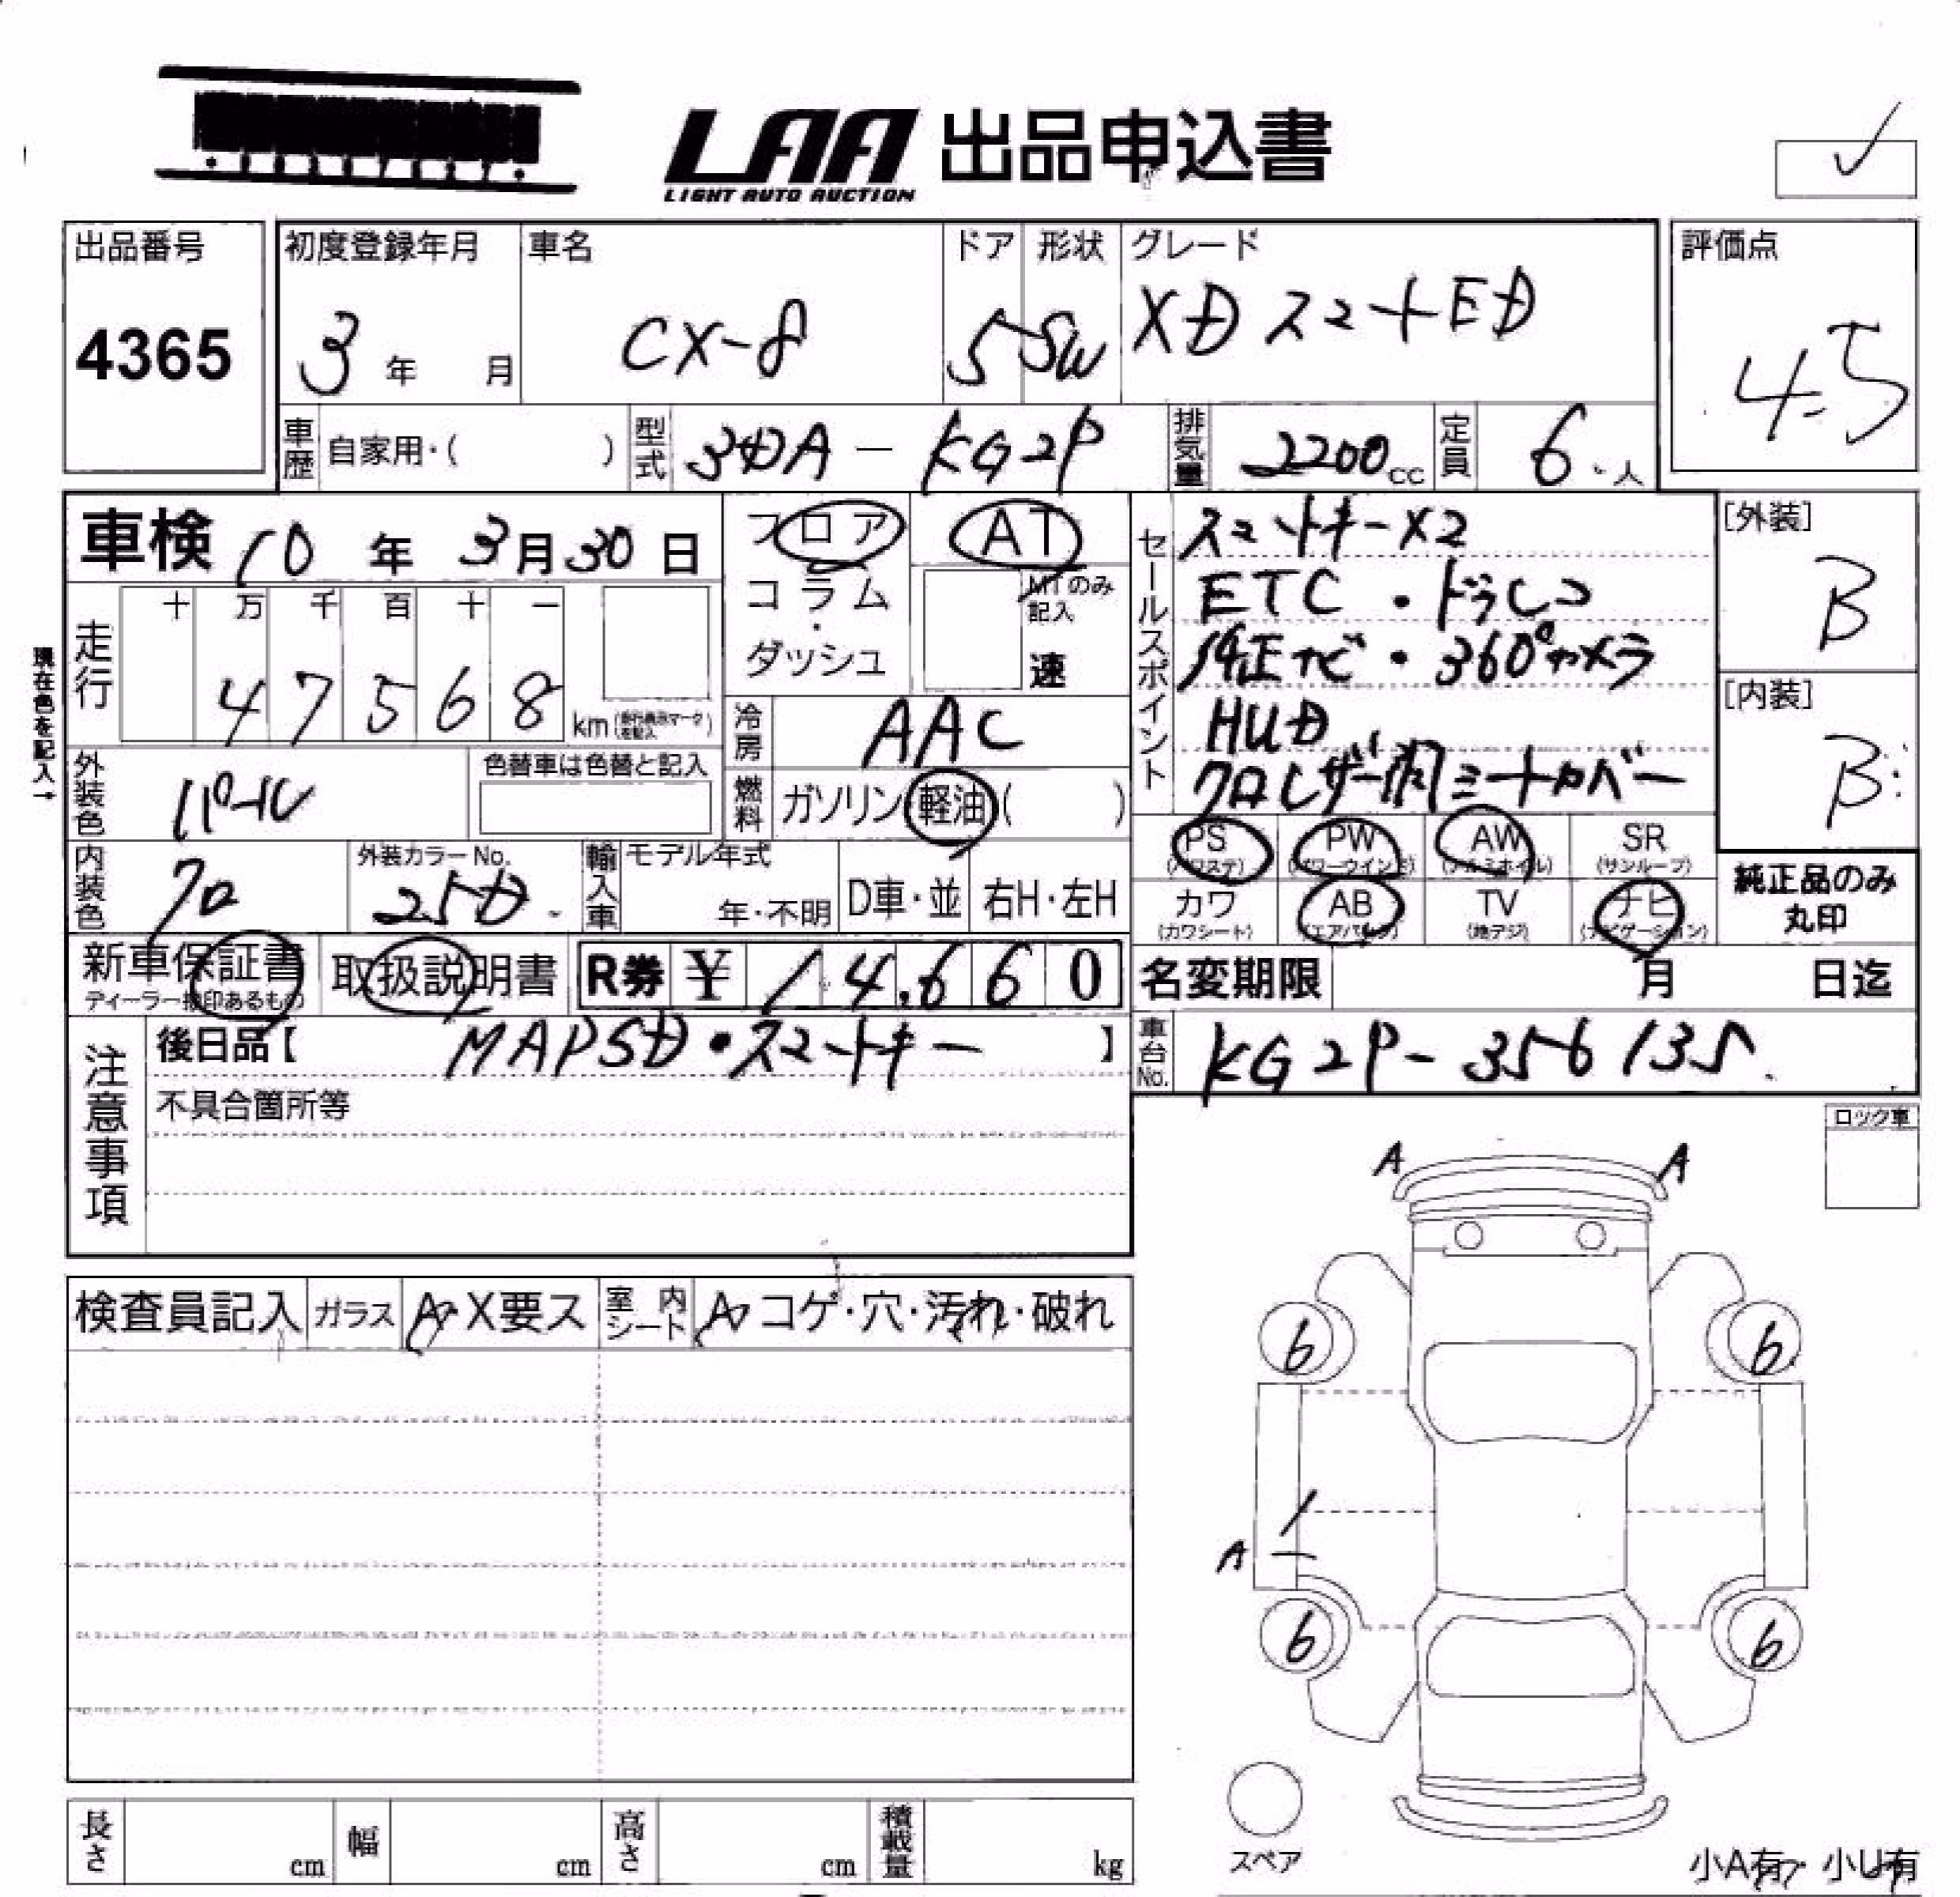 LAA 出品申込書
LIGHT AUTO AUCTION
出品番号 初度登録年月 車名 ドア 形状 グレード 評価点
4365 3年 月 CX-8 5 SW XD スマートED 4.5
車歴 自家用・( ) 型式 3DA-KG2P 排気量 2200cc 定員 6人
車検 10年 3月30日 フロア AT
コラム・ MTのみ記入
ダッシュ 速
走行 十 万 千 百 十 一
4 7 5 6 8 km
現在色を記入→
冷房 AAC
外装色 パール 色替車は色替と記入 燃料 ガソリン 軽油 ( )
内装色 クロ 外装カラーNo. 25D. 輸入車 モデル年式 年・不明 D車・並 右H・左H
セールスポイント スマートキーX2
ETC・ドラレコ
純正ナビ・360°カメラ
HUD
クロレザー調シートカバー
[外装] B
[内装] B
PS (パワステ) PW (パワーウインドウ) AW (アルミホイル) SR (サンルーフ)
カワ (カワシート) AB (エアバック) TV (地デジ) ナビ (ナビゲーション)
純正品のみ
丸印
新車保証書 取扱説明書 R券 ¥ 14,660 名変期限 月 日迄
ディーラー捺印あるもの
注意事項 後日品【 MAPSD・スマートキー 】 車台No. KG2P-356135.
不具合箇所等
ロック車
A A
検査員記入 ガラス A・X要ス 室内シート A コゲ・穴・汚れ・破れ
6 6
A
6 6
スペア
長さ cm 幅 cm 高さ cm 積載量 kg
小A有・小U有